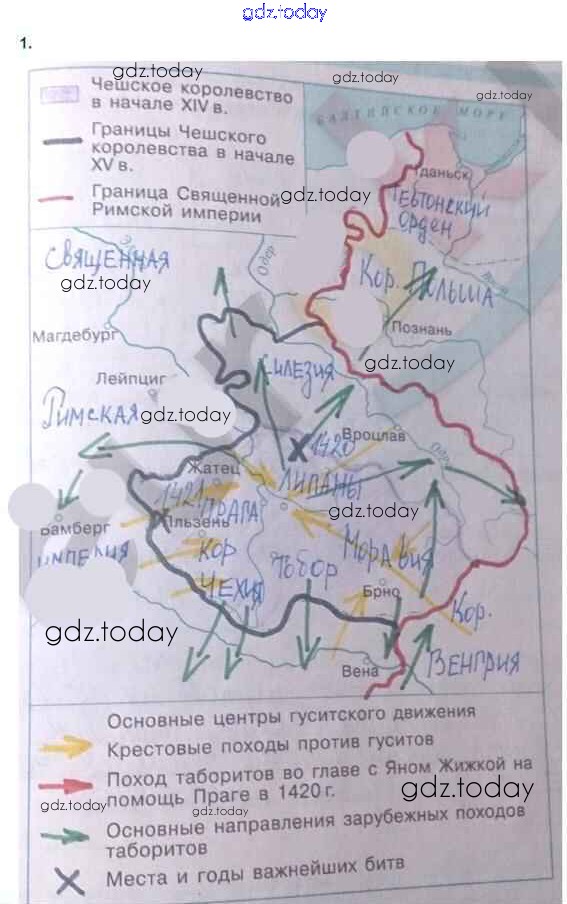 gdz.today
1.
gdz.today
Чешское королевство
в начале XIV в.
gdz.today
gdz.today
Границы Чешского
королевства в начале
XV в.
БАЛТИЙСКОЕ МОРЕ
Граница Священной
Римской империи
gdz.today
даньск
ТЕВТОНСКИЙ
ОРДЕН
СВЯЩЕННАЯ
gdz.today
Одер
КОР. ПОЛЬША
Магдебург
Познань
gdz.today
Лейпциг
СИЛЕЗИЯ
РИМСКАЯ
gdz.today
1420
Вроцлав
Жатец
ЛИПАНЫ
1421
ПРАГА
gdz.today
Бамберг
Пльзень
ИМПЕРИЯ
КОР
ЧЕХИЯ
ТОБОР
МОРАВИЯ
Брно
КОР.
ВЕНГРИЯ
gdz.today
Вена
Основные центры гуситского движения
Крестовые походы против гуситов
Поход таборитов во главе с Яном Жижкой на
помощь Праге в 1420 г.
gdz.today
gdz.today
gdz.today
Основные направления зарубежных походов
таборитов
Места и годы важнейших битв